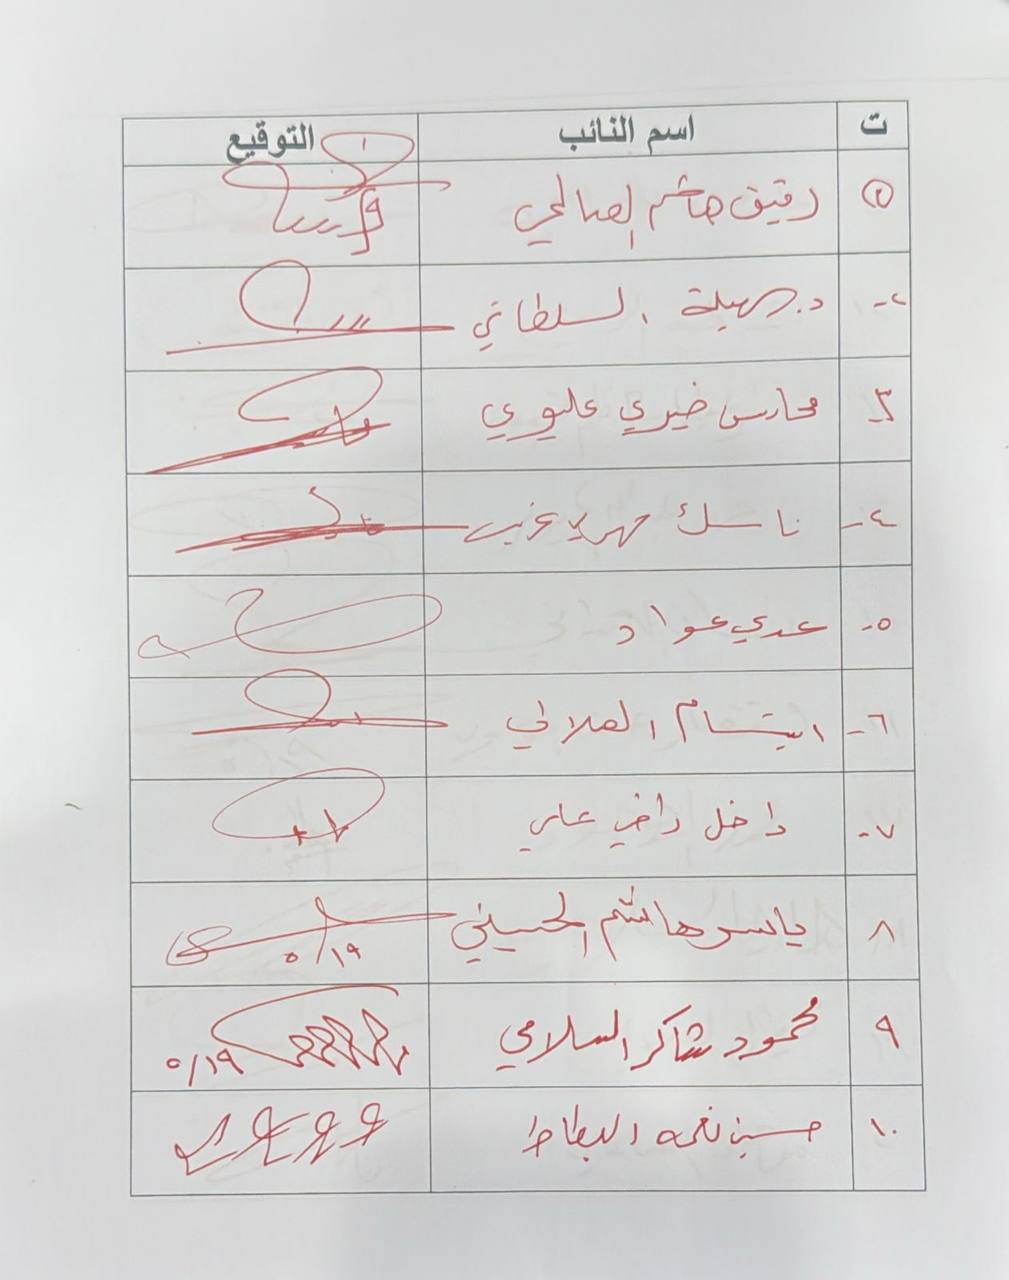 ت اسم النائب التوقيع
١ رفيق هاشم الصالحي
٢- د. سهيلة السلطاني
٣- محاسن خيري عليوي
٤- ناسك مهدي
٥- عدي عواد
٦- ابتسام الهلالي
٧- داخل راضي علي
٨ ياسر هاشم الحسيني ٥/١٩
٩ محمود شاكر السلامي ٥/١٩
١٠ حسين نعمه البطاط